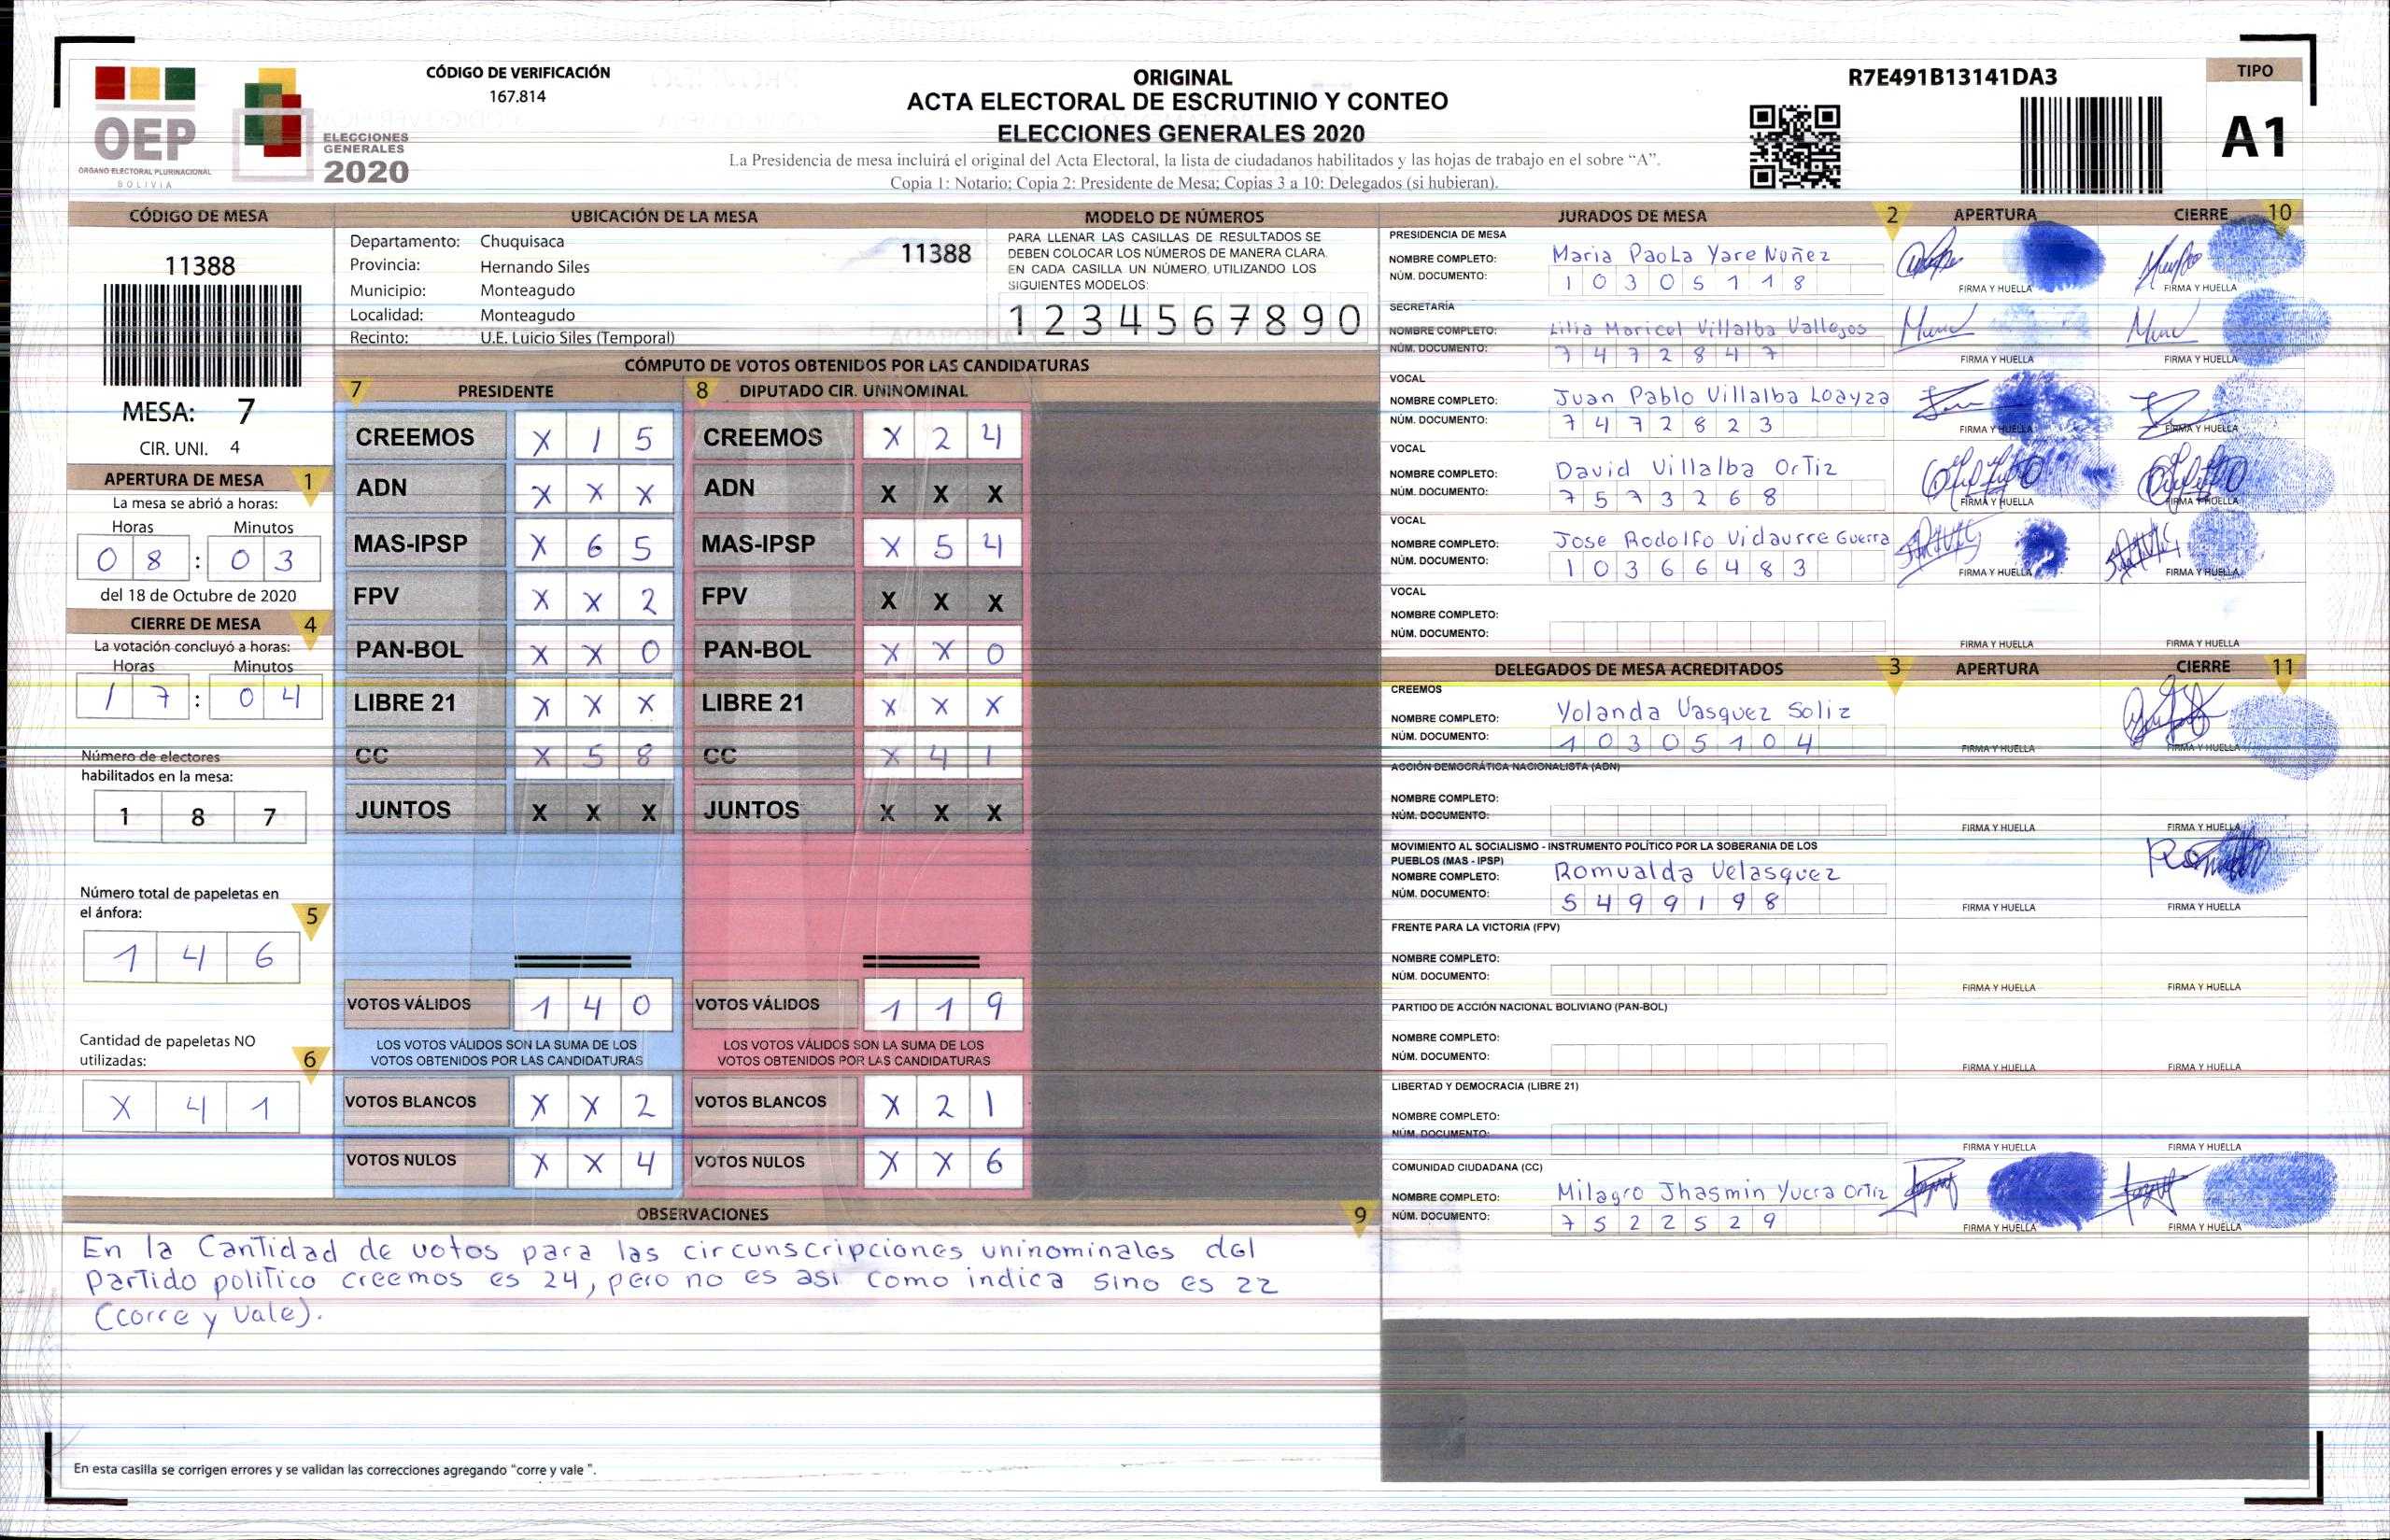 CÓDIGO DE VERIFICACIÓN
167.814
OEP
ÓRGANO ELECTORAL PLURINACIONAL
BOLIVIA
ELECCIONES
GENERALES
2020
ORIGINAL
ACTA ELECTORAL DE ESCRUTINIO Y CONTEO
ELECCIONES GENERALES 2020
La Presidencia de mesa incluirá el original del Acta Electoral, la lista de ciudadanos habilitados y las hojas de trabajo en el sobre “A”.
Copia 1: Notario; Copia 2: Presidente de Mesa; Copias 3 a 10: Delegados (si hubieran).
R7E491B13141DA3
TIPO
A1
CÓDIGO DE MESA
11388
MESA: 7
CIR. UNI. 4
APERTURA DE MESA 1
La mesa se abrió a horas:
Horas Minutos
0 8 : 0 3
del 18 de Octubre de 2020
CIERRE DE MESA 4
La votación concluyó a horas:
Horas Minutos
1 7 : 0 4
Número de electores
habilitados en la mesa:
1 8 7
Número total de papeletas en
el ánfora: 5
1 4 6
Cantidad de papeletas NO
utilizadas: 6
X 4 1
UBICACIÓN DE LA MESA
Departamento: Chuquisaca 11388
Provincia: Hernando Siles
Municipio: Monteagudo
Localidad: Monteagudo
Recinto: U.E. Luicio Siles (Temporal)
MODELO DE NÚMEROS
PARA LLENAR LAS CASILLAS DE RESULTADOS SE
DEBEN COLOCAR LOS NÚMEROS DE MANERA CLARA.
EN CADA CASILLA UN NÚMERO, UTILIZANDO LOS
SIGUIENTES MODELOS:
1 2 3 4 5 6 7 8 9 0
CÓMPUTO DE VOTOS OBTENIDOS POR LAS CANDIDATURAS
7 PRESIDENTE 8 DIPUTADO CIR. UNINOMINAL
CREEMOS X 1 5 CREEMOS X 2 4
ADN X X X ADN X X X
MAS-IPSP X 6 5 MAS-IPSP X 5 4
FPV X X 2 FPV X X X
PAN-BOL X X 0 PAN-BOL X X 0
LIBRE 21 X X X LIBRE 21 X X X
CC X 5 8 CC X 4 1
JUNTOS X X X JUNTOS X X X
VOTOS VÁLIDOS 1 4 0 VOTOS VÁLIDOS 1 1 9
LOS VOTOS VÁLIDOS SON LA SUMA DE LOS LOS VOTOS VÁLIDOS SON LA SUMA DE LOS
VOTOS OBTENIDOS POR LAS CANDIDATURAS VOTOS OBTENIDOS POR LAS CANDIDATURAS
VOTOS BLANCOS X X 2 VOTOS BLANCOS X 2 1
VOTOS NULOS X X 4 VOTOS NULOS X X 6
OBSERVACIONES 9
En la Cantidad de votos para las circunscripciones uninominales del
Partido político creemos es 24, pero no es asi como indica sino es 22
(corre y vale).
En esta casilla se corrigen errores y se validan las correcciones agregando “corre y vale ”.
JURADOS DE MESA 2 APERTURA CIERRE 10
PRESIDENCIA DE MESA
NOMBRE COMPLETO: Maria Paola Yare Nuñez
NÚM. DOCUMENTO: 1 0 3 0 5 1 1 8
FIRMA Y HUELLA FIRMA Y HUELLA
SECRETARÍA
NOMBRE COMPLETO: Lilia Maricel Villalba Vallejos
NÚM. DOCUMENTO: 7 4 7 2 8 4 7
FIRMA Y HUELLA FIRMA Y HUELLA
VOCAL
NOMBRE COMPLETO: Juan Pablo Villalba Loayza
NÚM. DOCUMENTO: 7 4 7 2 8 2 3
FIRMA Y HUELLA FIRMA Y HUELLA
VOCAL
NOMBRE COMPLETO: David Villalba Ortiz
NÚM. DOCUMENTO: 7 5 7 3 2 6 8
FIRMA Y HUELLA FIRMA Y HUELLA
VOCAL
NOMBRE COMPLETO: Jose Rodolfo Vidaurre Guerra
NÚM. DOCUMENTO: 1 0 3 6 6 4 8 3
FIRMA Y HUELLA FIRMA Y HUELLA
VOCAL
NOMBRE COMPLETO:
NÚM. DOCUMENTO:
FIRMA Y HUELLA FIRMA Y HUELLA
DELEGADOS DE MESA ACREDITADOS 3 APERTURA CIERRE 11
CREEMOS
NOMBRE COMPLETO: Yolanda Vasquez Soliz
NÚM. DOCUMENTO: 1 0 3 0 5 1 0 4
FIRMA Y HUELLA FIRMA Y HUELLA
ACCIÓN DEMOCRÁTICA NACIONALISTA (ADN)
NOMBRE COMPLETO:
NÚM. DOCUMENTO:
FIRMA Y HUELLA FIRMA Y HUELLA
MOVIMIENTO AL SOCIALISMO - INSTRUMENTO POLÍTICO POR LA SOBERANIA DE LOS
PUEBLOS (MAS - IPSP)
NOMBRE COMPLETO: Romualda Velasquez
NÚM. DOCUMENTO: 5 4 9 9 1 9 8
FIRMA Y HUELLA FIRMA Y HUELLA
FRENTE PARA LA VICTORIA (FPV)
NOMBRE COMPLETO:
NÚM. DOCUMENTO:
FIRMA Y HUELLA FIRMA Y HUELLA
PARTIDO DE ACCIÓN NACIONAL BOLIVIANO (PAN-BOL)
NOMBRE COMPLETO:
NÚM. DOCUMENTO:
FIRMA Y HUELLA FIRMA Y HUELLA
LIBERTAD Y DEMOCRACIA (LIBRE 21)
NOMBRE COMPLETO:
NÚM. DOCUMENTO:
FIRMA Y HUELLA FIRMA Y HUELLA
COMUNIDAD CIUDADANA (CC)
NOMBRE COMPLETO: Milagro Jhasmin Yucra Ortiz
NÚM. DOCUMENTO: 7 5 2 2 5 2 9
FIRMA Y HUELLA FIRMA Y HUELLA